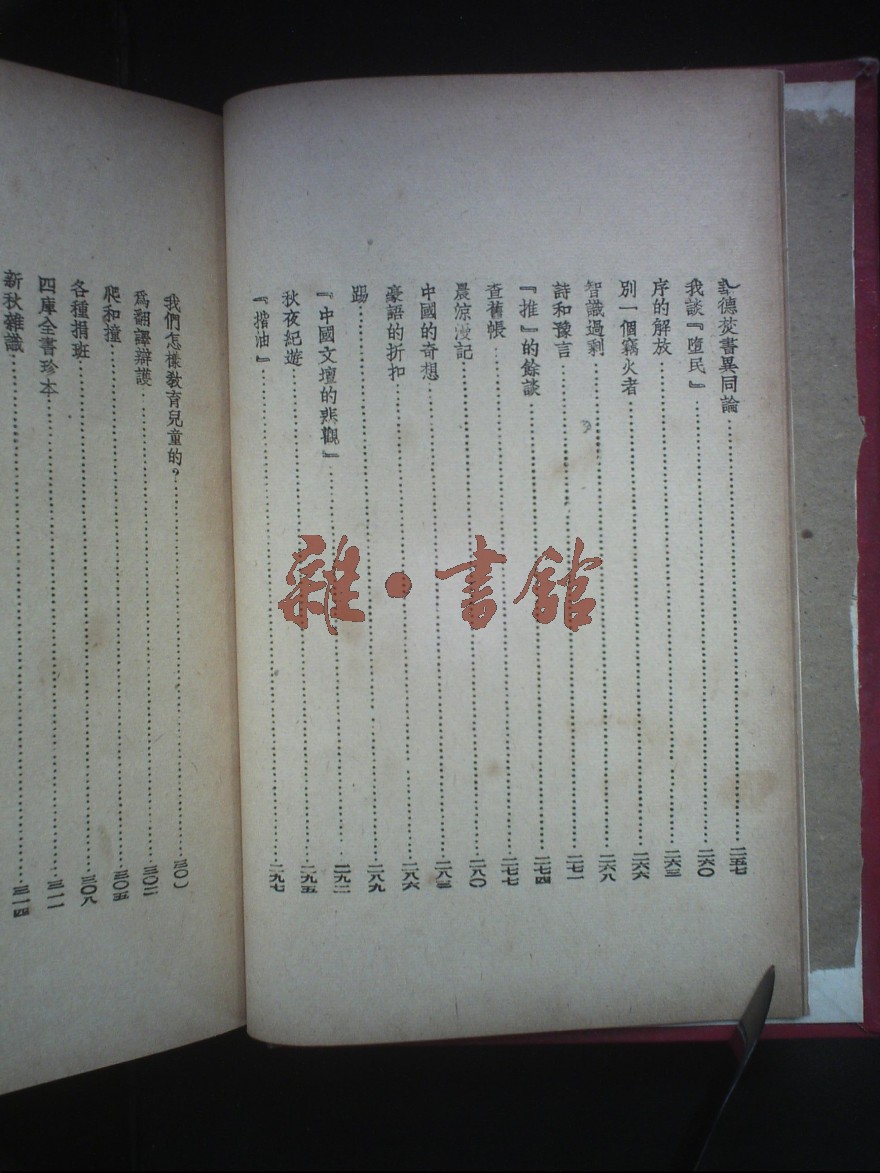 德焚書異同論……二五七
我談『墮民』……二六〇
序的解放……二六三
別一個竊火者……二六六
智識過剩……二六八
詩和豫言……二七一
『推』的餘談……二七四
查舊帳……二七七
晨涼漫記……二八〇
中國的奇想……二八三
豪語的折扣……二八六
踢……二八九
『中國文壇的悲觀』……二九二
秋夜紀遊……二九五
『揩油』……二九七
我們怎樣敎育兒童的？……三〇一
爲翻譯辯護……三〇二
爬和撞……三〇五
各種捐班……三〇八
四庫全書珍本……三一一
新秋雜識……三一四
雜·書館